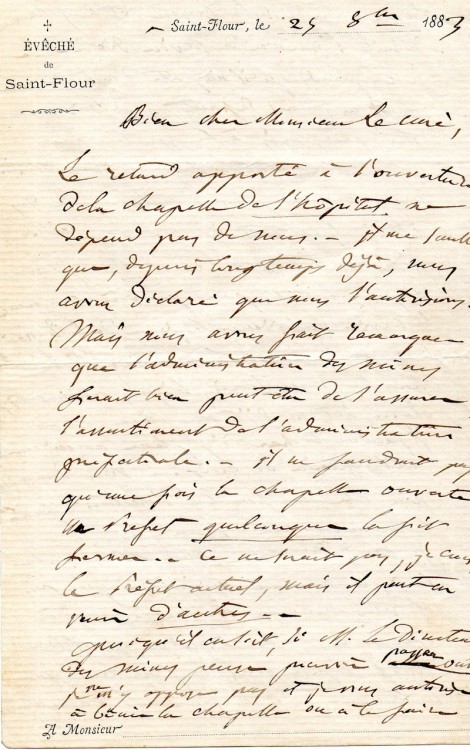 ÉVÊCHÉ
de
Saint-Flour
Saint-Flour, le 25 8bre 1883
Bien cher Monsieur Le curé,
Le retard apporté à l'ouverture
de la chapelle de l'hôpital ne
dépend pas de nous. — il me semble
que, depuis longtemps déjà, nous
avons déclaré que nous l'autorisions.
Mais nous avons fait remarquer
que l'administration des mines
ferait bien peut-être de s'assurer
l'assentiment de l'administration
préfectorale. — il ne faudrait pas
qu'une fois la chapelle ouverte
un Préfet quelconque la fit
fermer. — ce ne serait pas, je crois
le Préfet actuel, mais il peut en
venir d'autres. —
quoiqu'il en soit, si M. le Directeur
des mines pense pouvoir passer outre
je ne m'y oppose pas et je vous autorise
à bénir la chapelle ou à la faire
A Monsieur